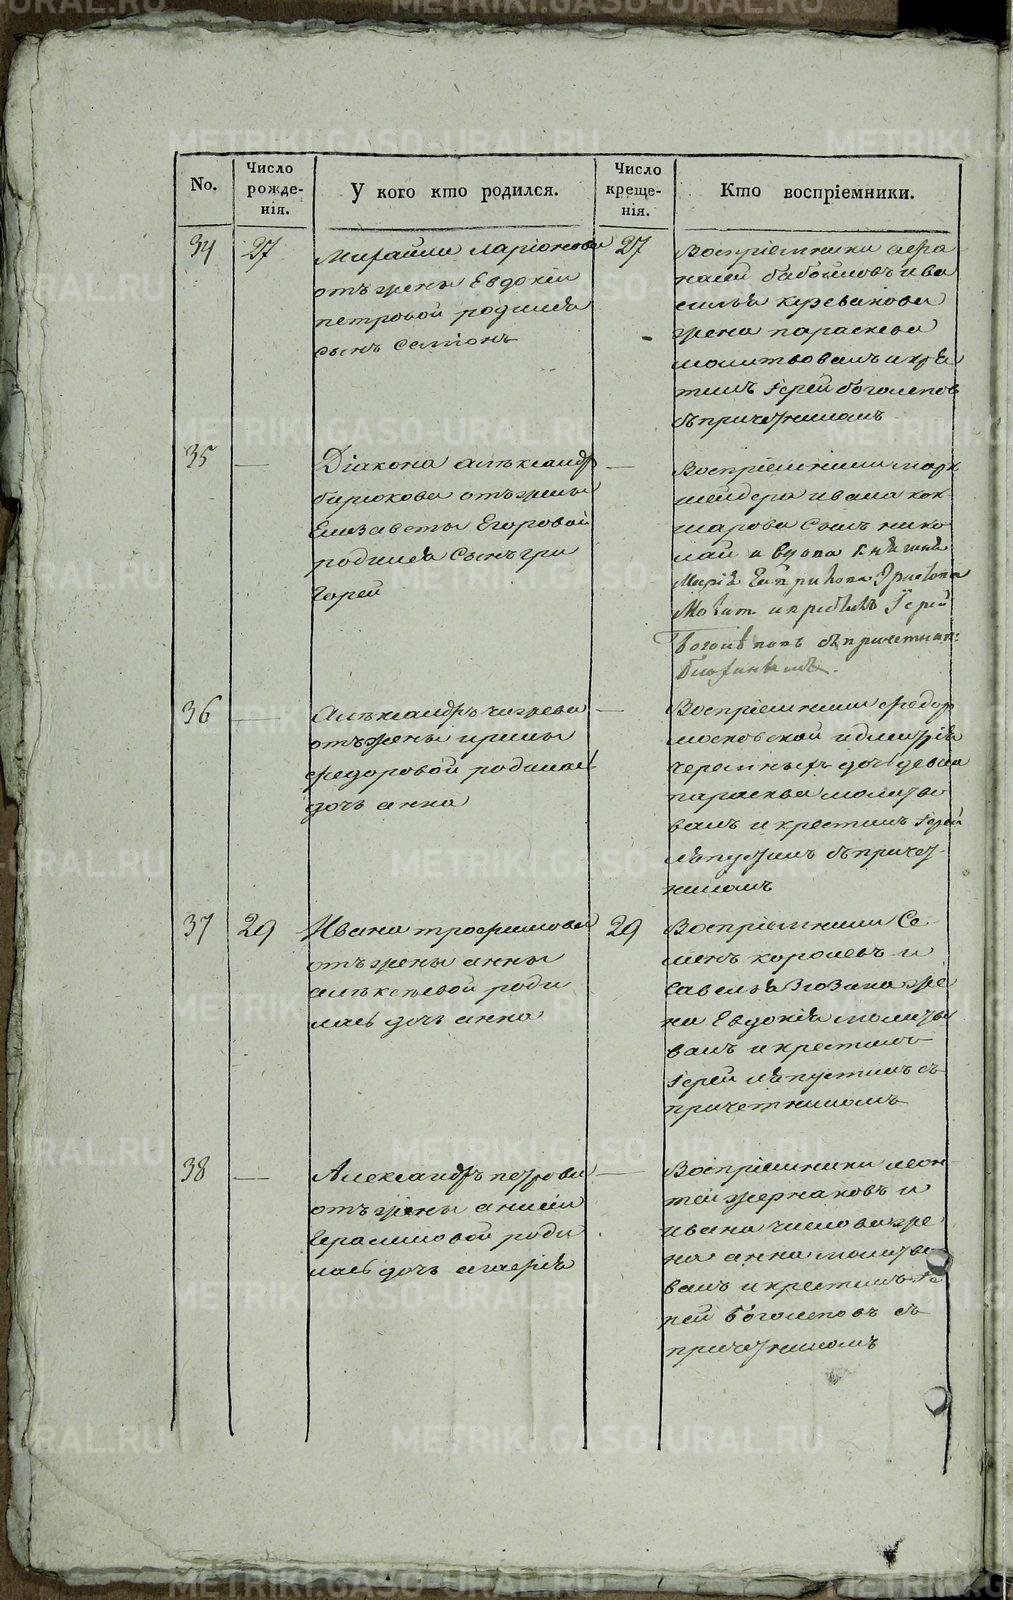 METRIKI.GASO-URAL.RU
No.
Число рожде-нія.
У кого кто родился.
Число креще-нія.
Кто воспріемники.
34
27
Михайли ларіонова
отъ жены Евдокіи
петровой родился
сынъ Симіонъ
27
Воспріемники афа
насей бабойловъ и ва
силья
жена параскева
молитвовалъ и кре
тилъ Іерей боголепов
съ причетникомъ
35
—
Діакона александр
бирюкова отъ жены
Елизаветы Егоровой
родился Сынъ гри
горей
—
Воспріемники марк
шейдера ивана кок
шарова сынъ нико
лай и вдова
Молит. и крестилъ Іерей
Боголѣповъ съ причетник:
36
—
Александръ чигрева
отъ жены ирины
федоровой родилась
дочь анна
—
Воспріемники федор
московской и дмитрія
черемныхъ дочь девка
параскева молитво
валъ и крестилъ Іерей
ляпустинъ съ причет-
никомъ
37
29
Ивана трофимова
отъ жены анны
алексѣевой роди
лась дочь анна
29
Воспріемники Се
менъ королевъ и
савелья Зюзина же
на Евдокія молитво
валъ и крестилъ
Іерей ляпустинъ съ
причетникомъ
38
—
Александръ петрова
отъ жены анисіи
Герасимовой роди
лась дочь агафія
—
Воспріемники леон
тей жернаковъ и
ивана числова же
на анна молитво
валъ и крестилъ Іе
рей боголеповъ съ
причетникомъ